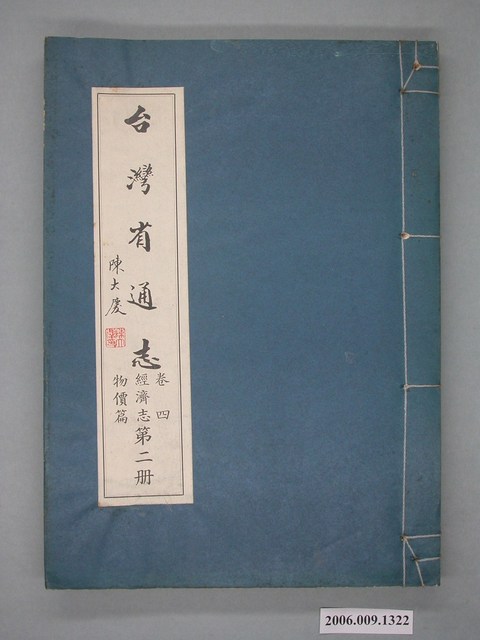 台灣省通志
陳大慶
卷四
經濟志第二册
物價篇
2006.009.1322